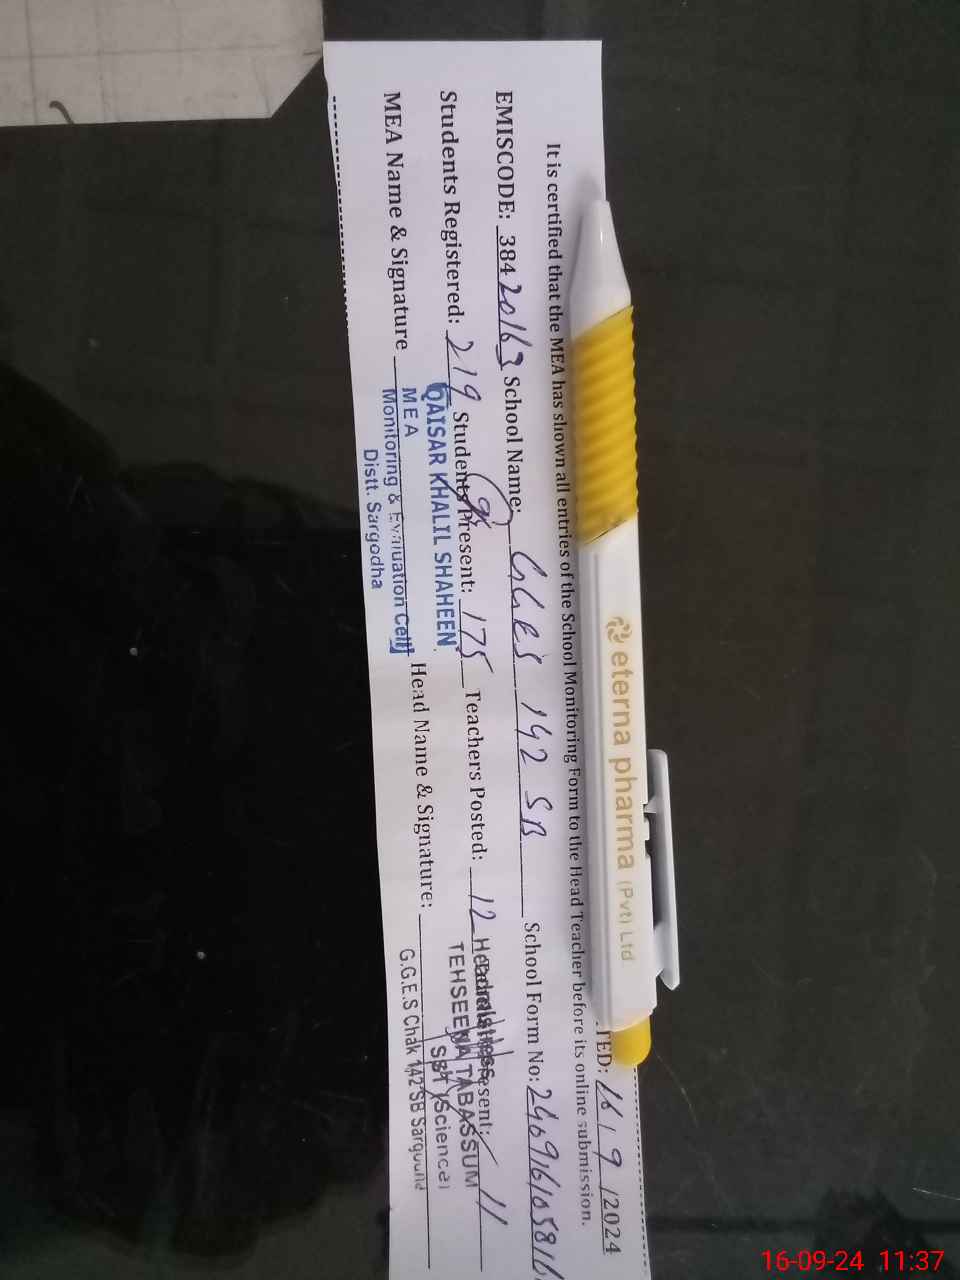 TED: 16/9/2024
It is certified that the MEA has shown all entries of the School Monitoring Form to the Head Teacher before its online submission.
EMISCODE: 38420163 School Name: GGES 142 SB School Form No: 240916105816
Students Registered: 219 Students Present: 175 Teachers Posted: 12 Present: 11
MEA Name & Signature Head Name & Signature:
QAISAR KHALIL SHAHEEN
MEA
Monitoring & Evaluation Cell
Distt. Sargodha
Headmistress
TEHSEENA TABASSUM
SST (Science)
G.G.E.S Chak 142 SB Sargodha
eterna pharma (Pvt) Ltd
16-09-24 11:37